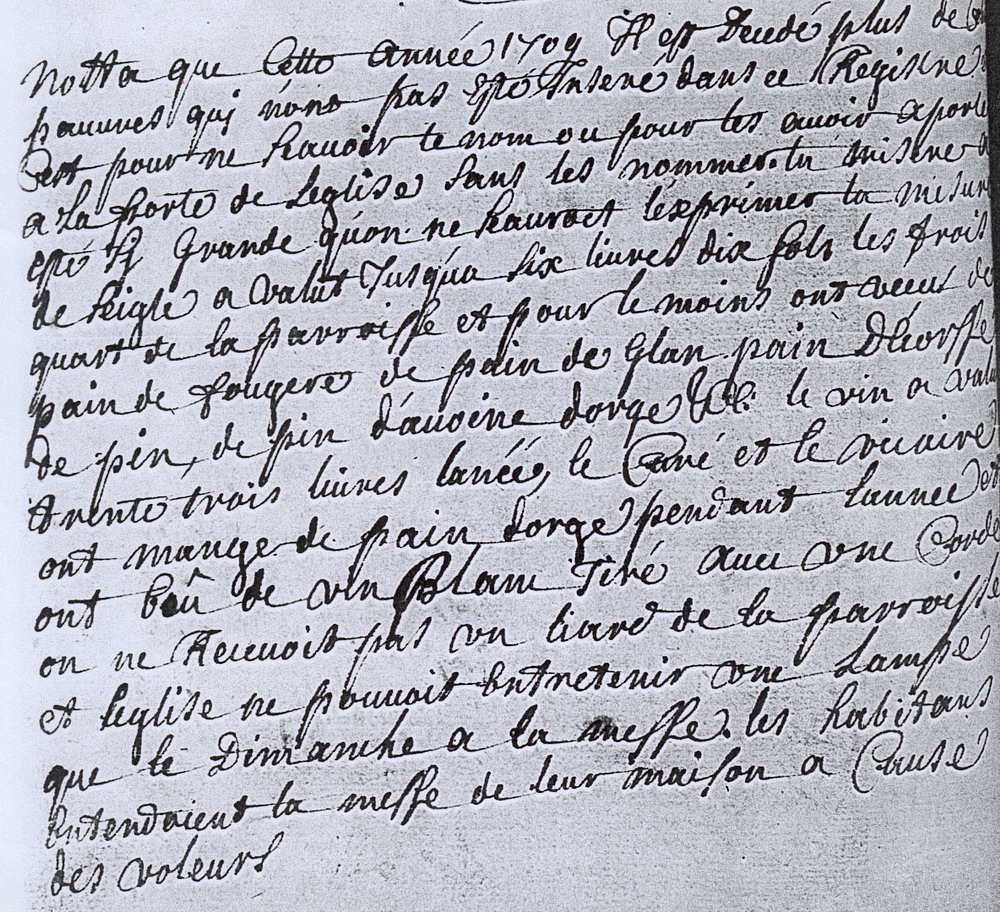 Notta que Cette Année 1709 Il est Decedé plus de
pauures quj nònt pas Esté Inseré dans ce Registre
Cest pour ne scauoir le nom ou pour les auoir aporté
a La porte de Leglise sans les nommer. la misere a
esté sj Grande quòn ne scauroit lexprimer la mesure
de seigle a valut Jusqua six liures dix sols les trois
quart de la parroisse et pour le moins ont vecu de
pain de fougere de pain de Glan pain Dècorsse
de pin, de pin dàuoine dorge &c. le vin a valu
trente trois liures lanéé, le Curé et le vicaire
ont mangé de pain dorge pendant lannee et
ont bûu de vin Blanc Tiré auec vne Corde
on ne Receuoit pas vn liard de la parroisse
et leglise ne pouuoit Entretenir vne Lampe
que le Dimanche a la messe. les habitans
Entendoient la messe de leur maison a Cause
des voleurs